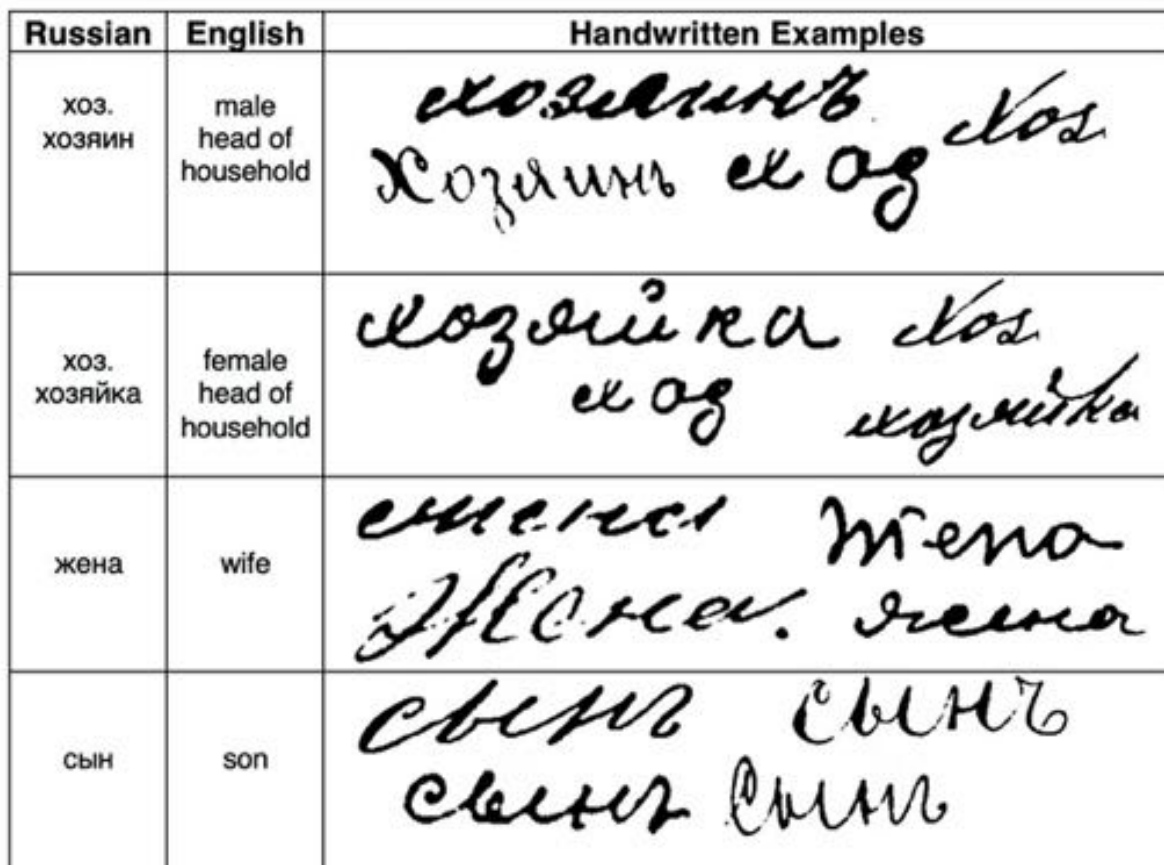 Russian English Handwritten Examples
хоз.
хозяин
male
head of
household
хозяинъ Хоз
Хозяинъ хоз
хоз.
хозяйка
female
head of
household
хозяйка Хоз
хоз хозяйка
жена
wife
жена Жена
Жена. жена
сын
son
сынъ сынъ
сынъ Сынъ